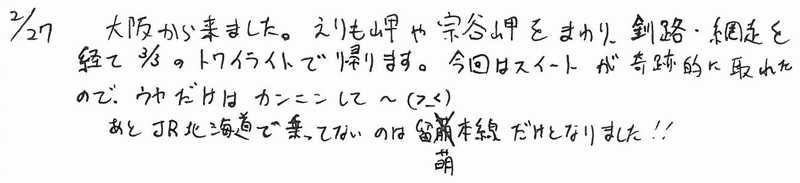 2/27 大阪から来ました。えりも岬や宗谷岬をまわり、釧路・網走を
経て3/3のトワイライトで帰ります。今回はスイートが奇跡的に取れた
ので、ウヤだけはカンニンして～(>_<)
あとJR北海道で乗ってないのは留萌本線だけとなりました!!